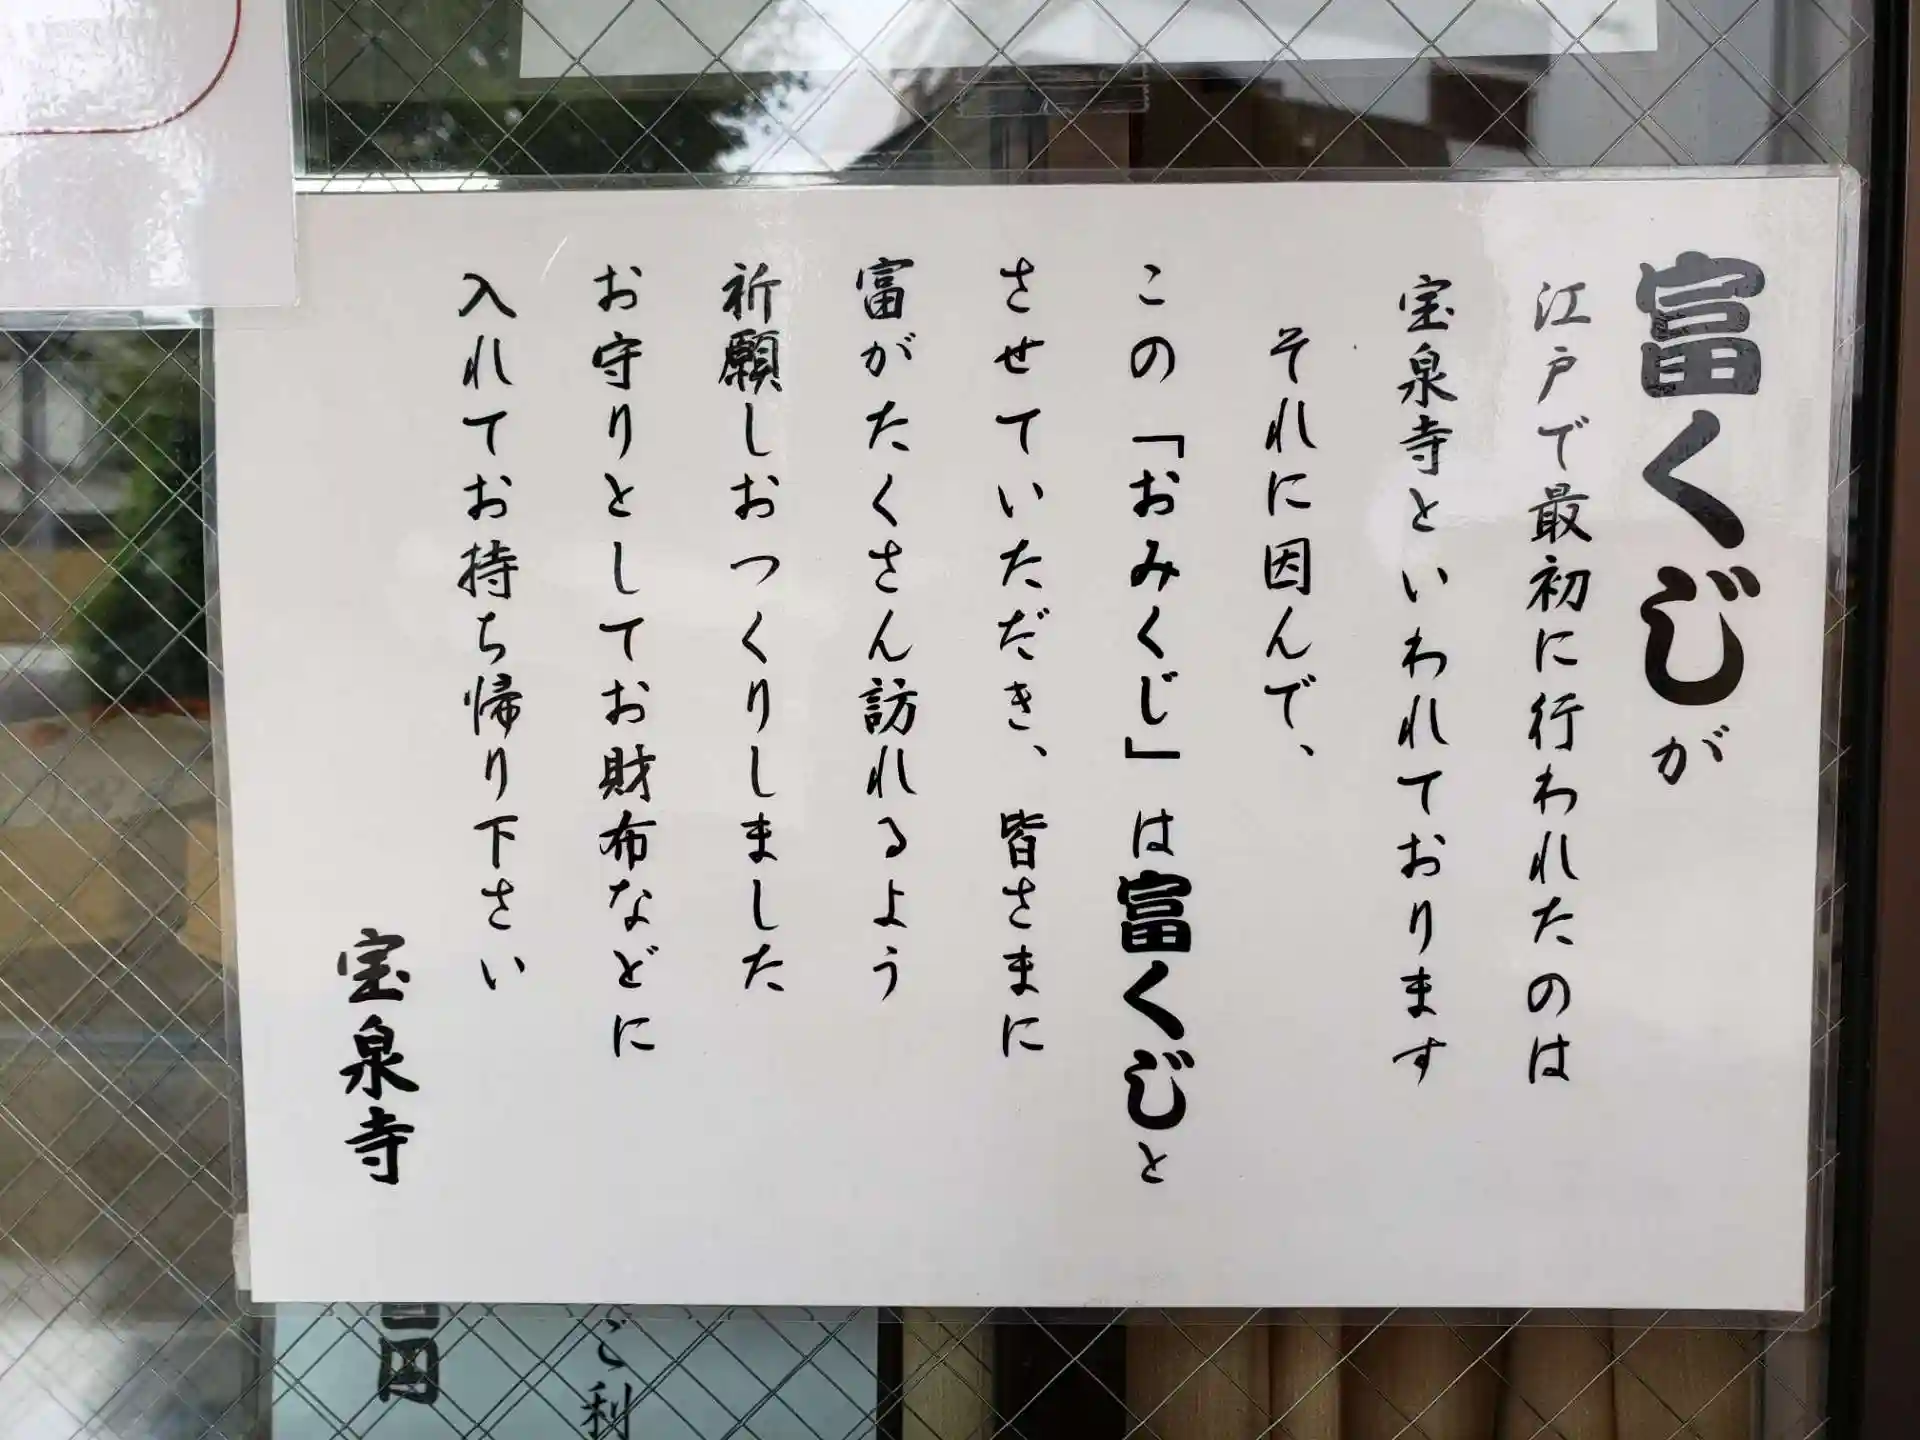 富くじが
江戸で最初に行われたのは
宝泉寺といわれております
それに因んで、
この「おみくじ」は富くじと
させていただき、皆さまに
富がたくさん訪れるよう
祈願しおつくりしました
お守りとしてお財布などに
入れてお持ち帰り下さい
宝泉寺
ご利